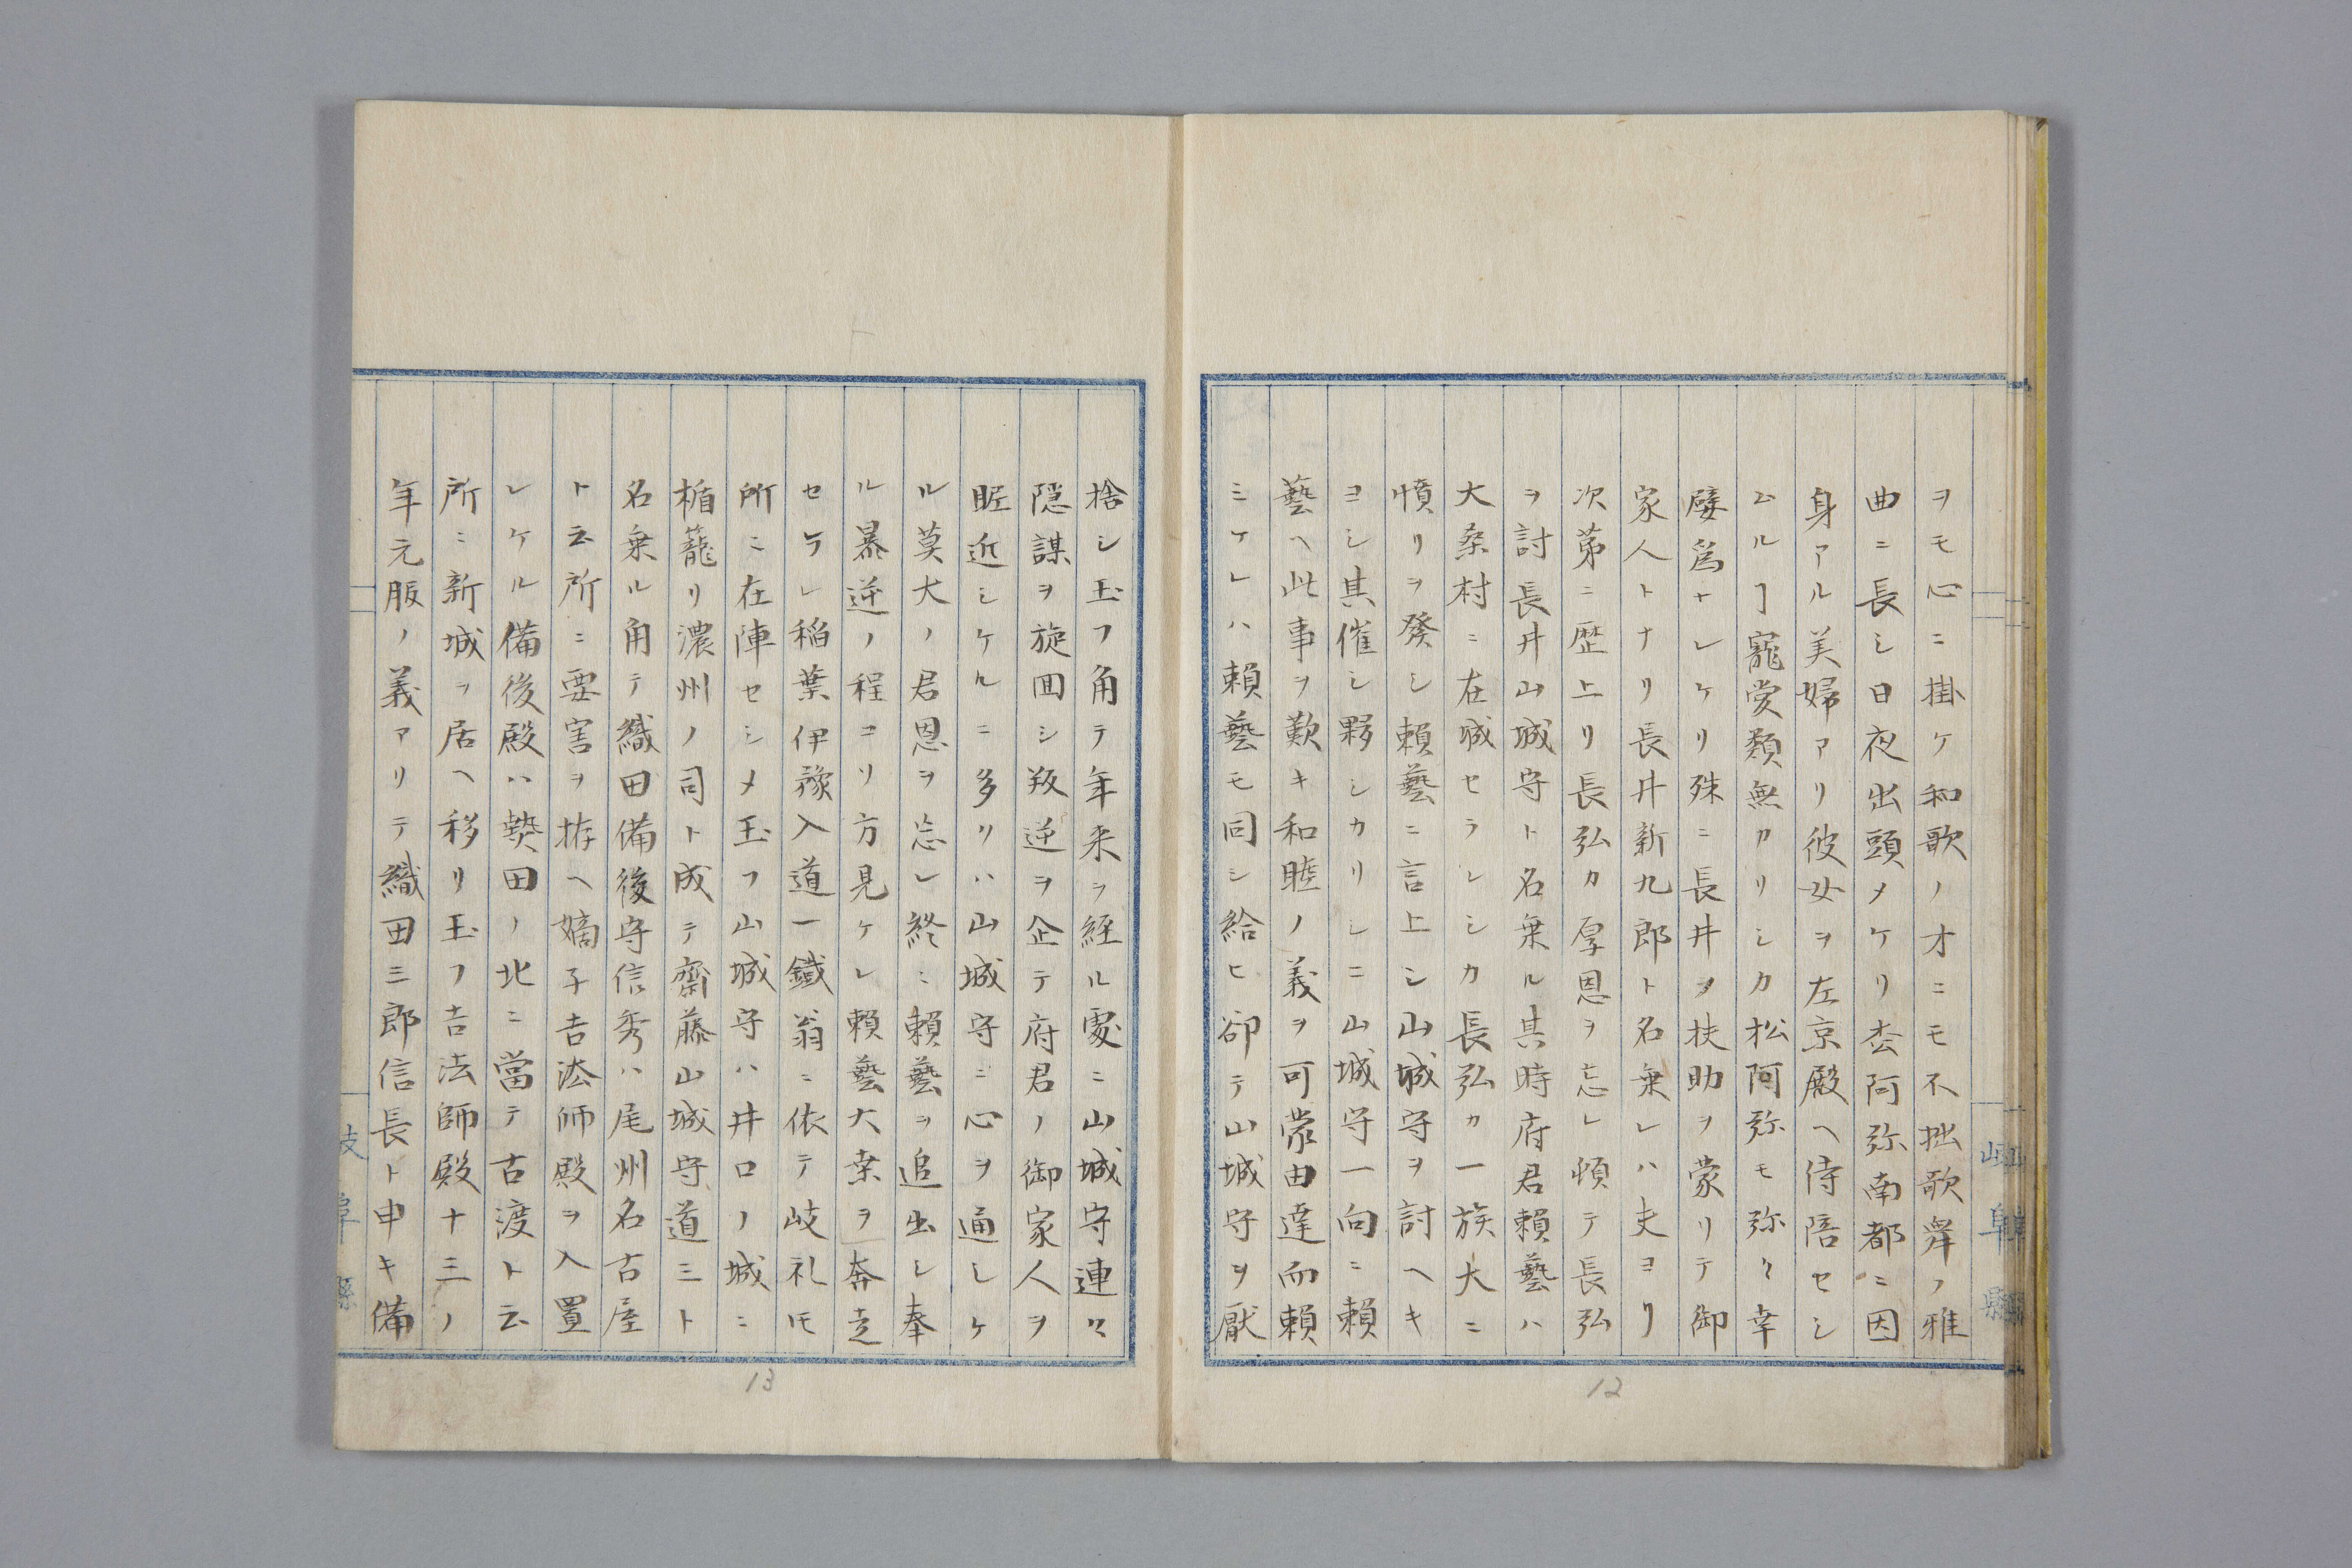 ヲモ心ニ掛ケ和歌ノオニモ不拙歌舞ノ雅
曲ニ長シ日夜出頭メケリ枩阿弥南都ニ因
身アル美婦アリ彼女ヲ左京殿ヘ侍陪セシ
ムルヿ寵愛類無カリシカ松阿弥モ弥々幸
嬖爲ナレケリ殊ニ長井ヲ扶助ヲ蒙リテ御
家人トナリ長井新九郎ト名乗レハ夫ヨリ
次第ニ歴上リ長弘カ厚恩ヲ忘レ傾テ長弘
ヲ討長井山城守ト名乗ル其時府君頼藝ハ
大桒村ニ在城セラレシカ長弘カ一族大ニ
憤リヲ發シ頼藝ニ言上シ山城守ヲ討ヘキ
ヨシ其催シ夥シカリシニ山城守一向ニ頼
藝ヘ此事ヲ歎キ和睦ノ義ヲ可蒙由達而頼
ミケレハ頼藝モ同シ給ヒ郤テ山城守ヲ厭
捨シ玉フ角テ年来ヲ経ル處ニ山城守連々
隠謀ヲ旋囬シ叛逆ヲ企テ府君ノ御家人ヲ
昵近シケルニ多リハ山城守ニ心ヲ通シケ
ル莫大ノ君恩ヲ忘レ終ニ頼藝ヲ追出シ奉
ル暴逆ノ程コソ方見ケレ頼藝大桒ヲ奔走
セケレ稲葉伊豫入道一鐵翁ニ依テ岐礼ト
所ニ在陣セシメ玉フ山城守ハ井口ノ城ニ
楯籠リ濃州ノ司ト成テ齋藤山城守道三ト
名乗ル角テ織田備後守信秀ハ尾州名古屋
ト云所ニ要害ヲ拵ヘ嫡子吉法師殿ヲ入置
レケル備後殿ハ熱田ノ北ニ當テ古渡ト云
所ニ新城ヲ居ヘ移リ玉フ吉法師殿十三ノ
年元服ノ義アリテ織田三郎信長ト申キ備
12
13
岐阜縣